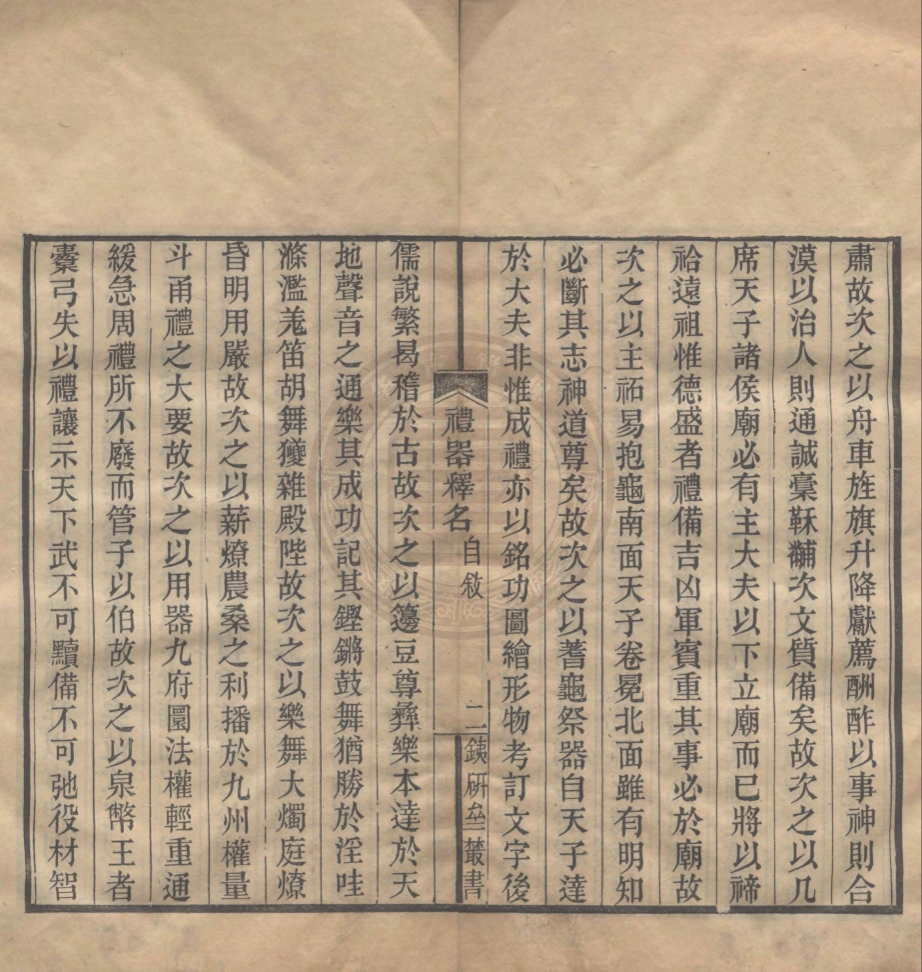 肅故次之以舟車旌旗升降獻薦酬酢以事神則合
漠以治人則通誠稾鞂黼次文質備矣故次之以几
席天子諸侯廟必有主大夫以下立廟而已將以禘
祫遠祖惟德盛者禮備吉凶軍賓重其事必於廟故
次之以主祏易抱龜南面天子卷冕北面雖有明知
必斷其志神道尊矣故次之以蓍龜祭器自天子達
於大夫非惟成禮亦以銘功圖繪形物考訂文字後
禮器釋名 自敘 二 鐵研齋叢書
儒說繁曷稽於古故次之以籩豆尊彝樂本達於天
地聲音之通樂其成功記其鏗鏘鼓舞猶勝於淫哇
滌濫羗笛胡舞獶雜殿陛故次之以樂舞大燭庭燎
昏明用嚴故次之以薪燎農桑之利播於九州權量
斗甬禮之大要故次之以用器九府圜法權輕重通
緩急周禮所不廢而管子以伯故次之以泉幣王者
櫜弓矢以禮讓示天下武不可黷備不可弛役材智